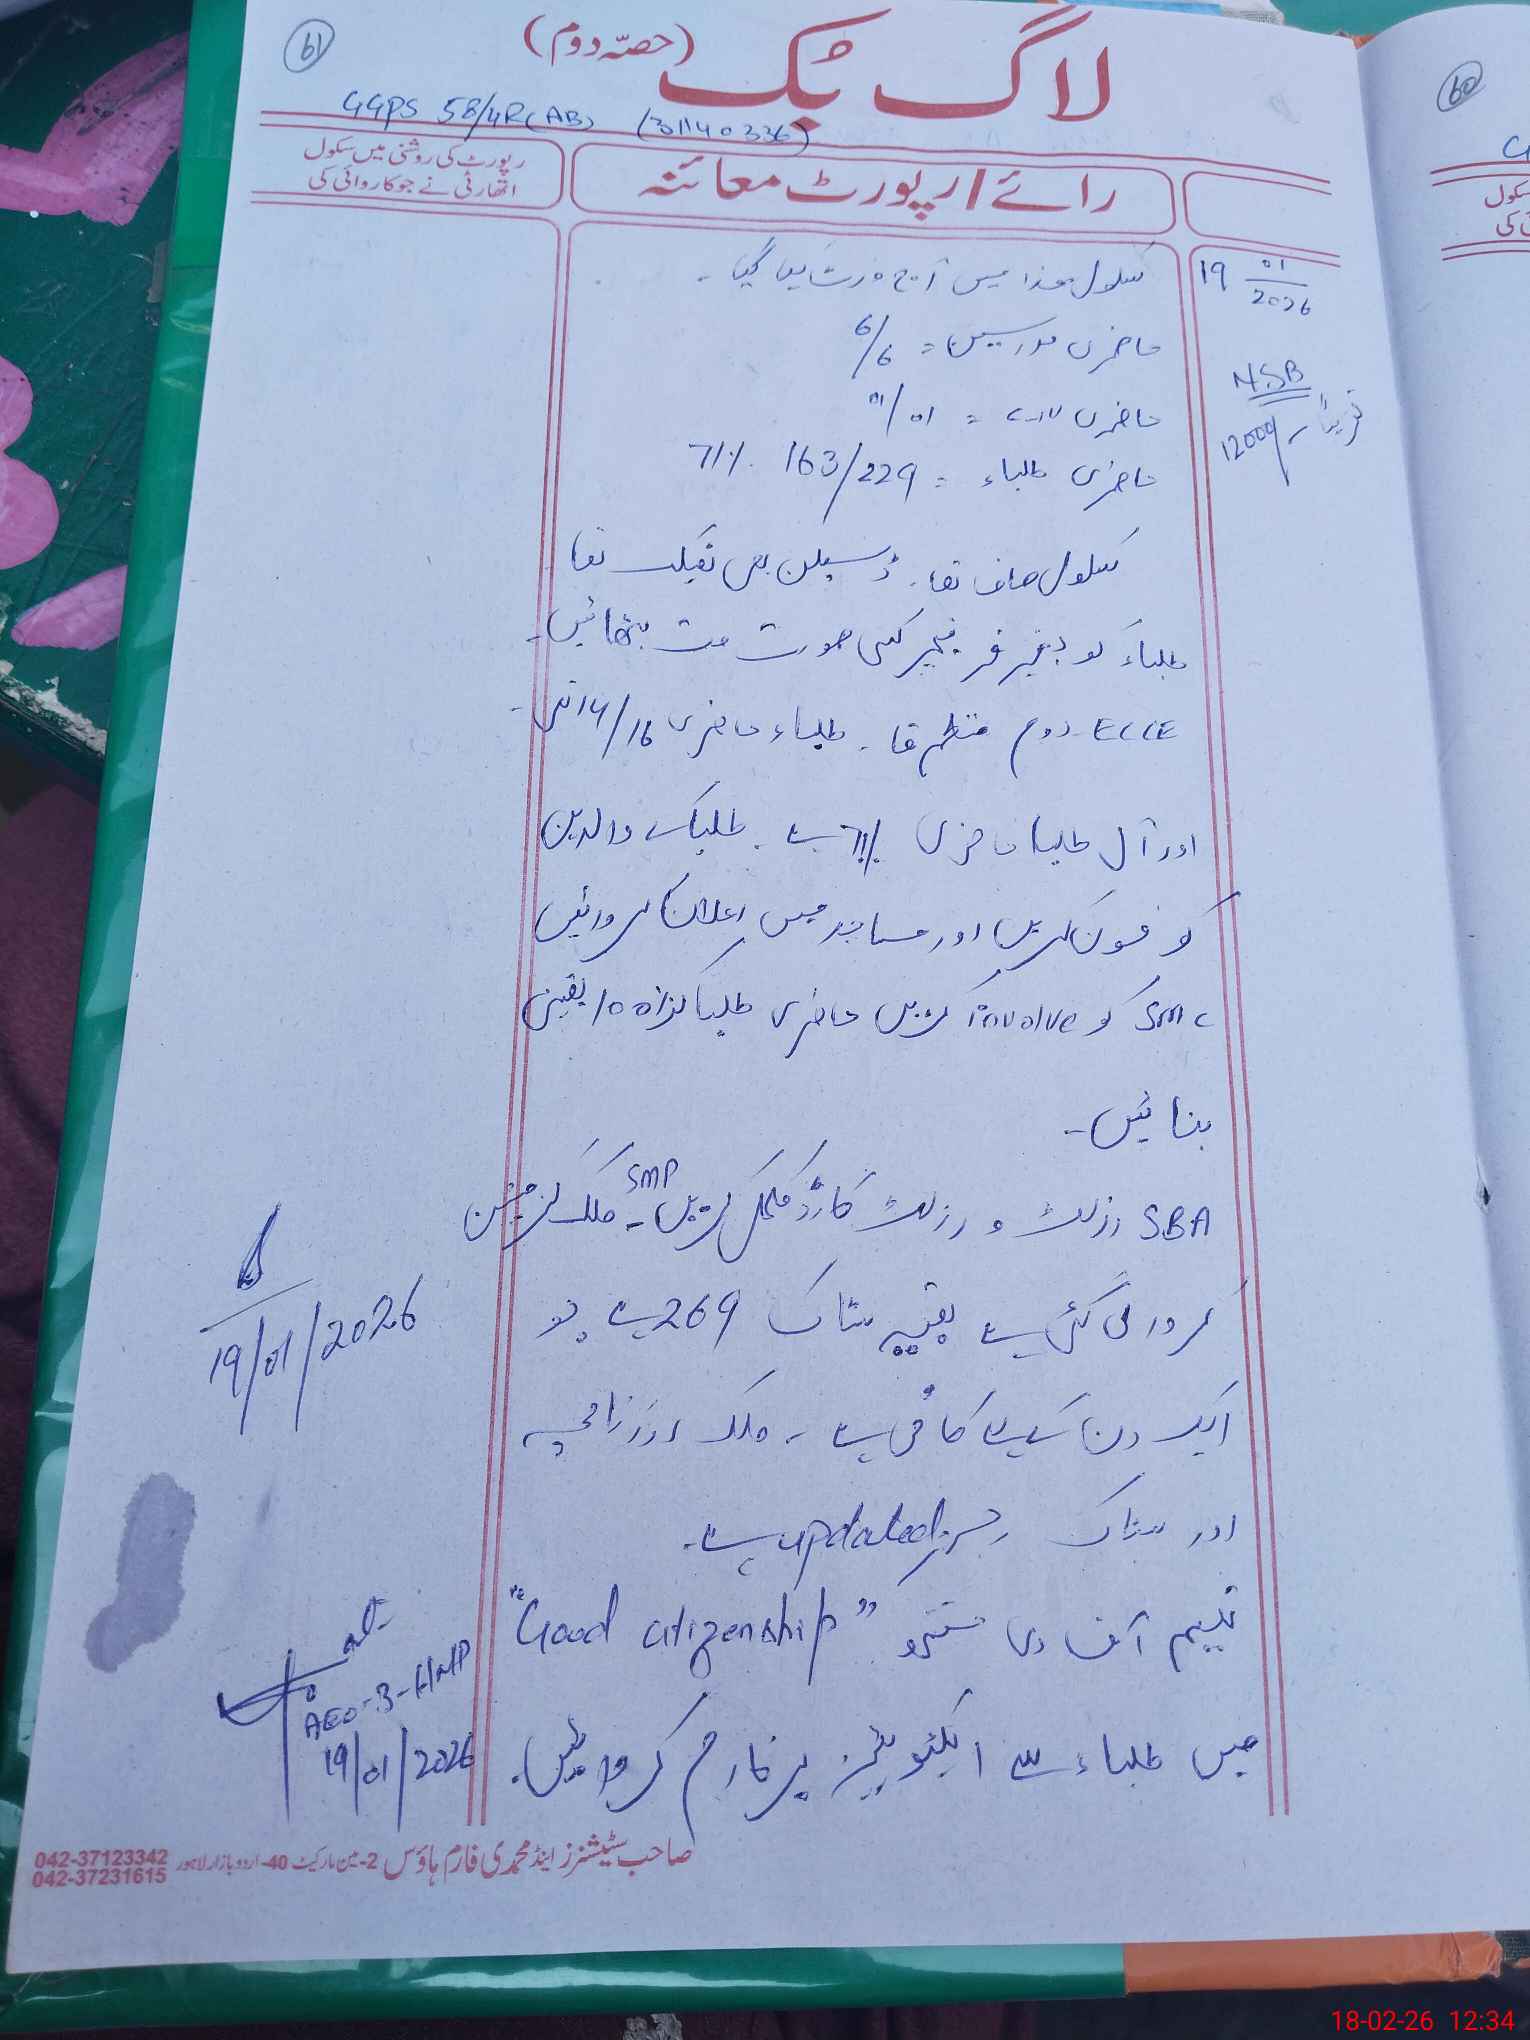 61
لاگ بک (حصّہ دوم)
GGPS 58/4R(AB) (31140336)
رائے / رپورٹ معائنہ
رپورٹ کی روشنی میں سکول
اتھارٹی نے جو کاروائی کی
19 01/2026
سکول ھذا میں آج وزٹ کیا گیا۔
حاضری مدرسین = 6/6
NSB
تقریباً 12000/
حاضری = 01/01
حاضری طلباء = 163/229 71%
سکول صاف تھا۔ ڈسپلن بھی ٹھیک تھا
طلباء کو بغیر فرنیچر کسی صورت مت بٹھائیں۔
ECCE روم منظم تھا۔ طلباء حاضری 14/16 تھی۔
اور آل طلبا حاضری 71% ہے۔ طلباکے والدین
کو فون کریں اور مساجد میں اعلان کروائیں
SMC کو involve کریں حاضری طلبا 100% یقینی
بنائیں۔
SBA رزلٹ و رزلٹ کارڈ مکمل کریں۔ SMP ملک
کروائی گئی ہے بقیہ سٹاک 269 ہے جو
ایک دن کےلیے کافی ہے۔ ملک
اور سٹاک رجسٹر updated ہے۔
تھیم آف دی منتھ "Good citizenship"
میں طلباء سے ایکٹویٹیز پرفارم کروائیں۔
19/01/2026
AEO-3-
19/01/2026
صاحب سٹیشنرز اینڈ محمدی فارم ہاؤس 2-مین مارکیٹ 40-اردو بازار لاہور 042-37123342
042-37231615
60
18-02-26 12:34